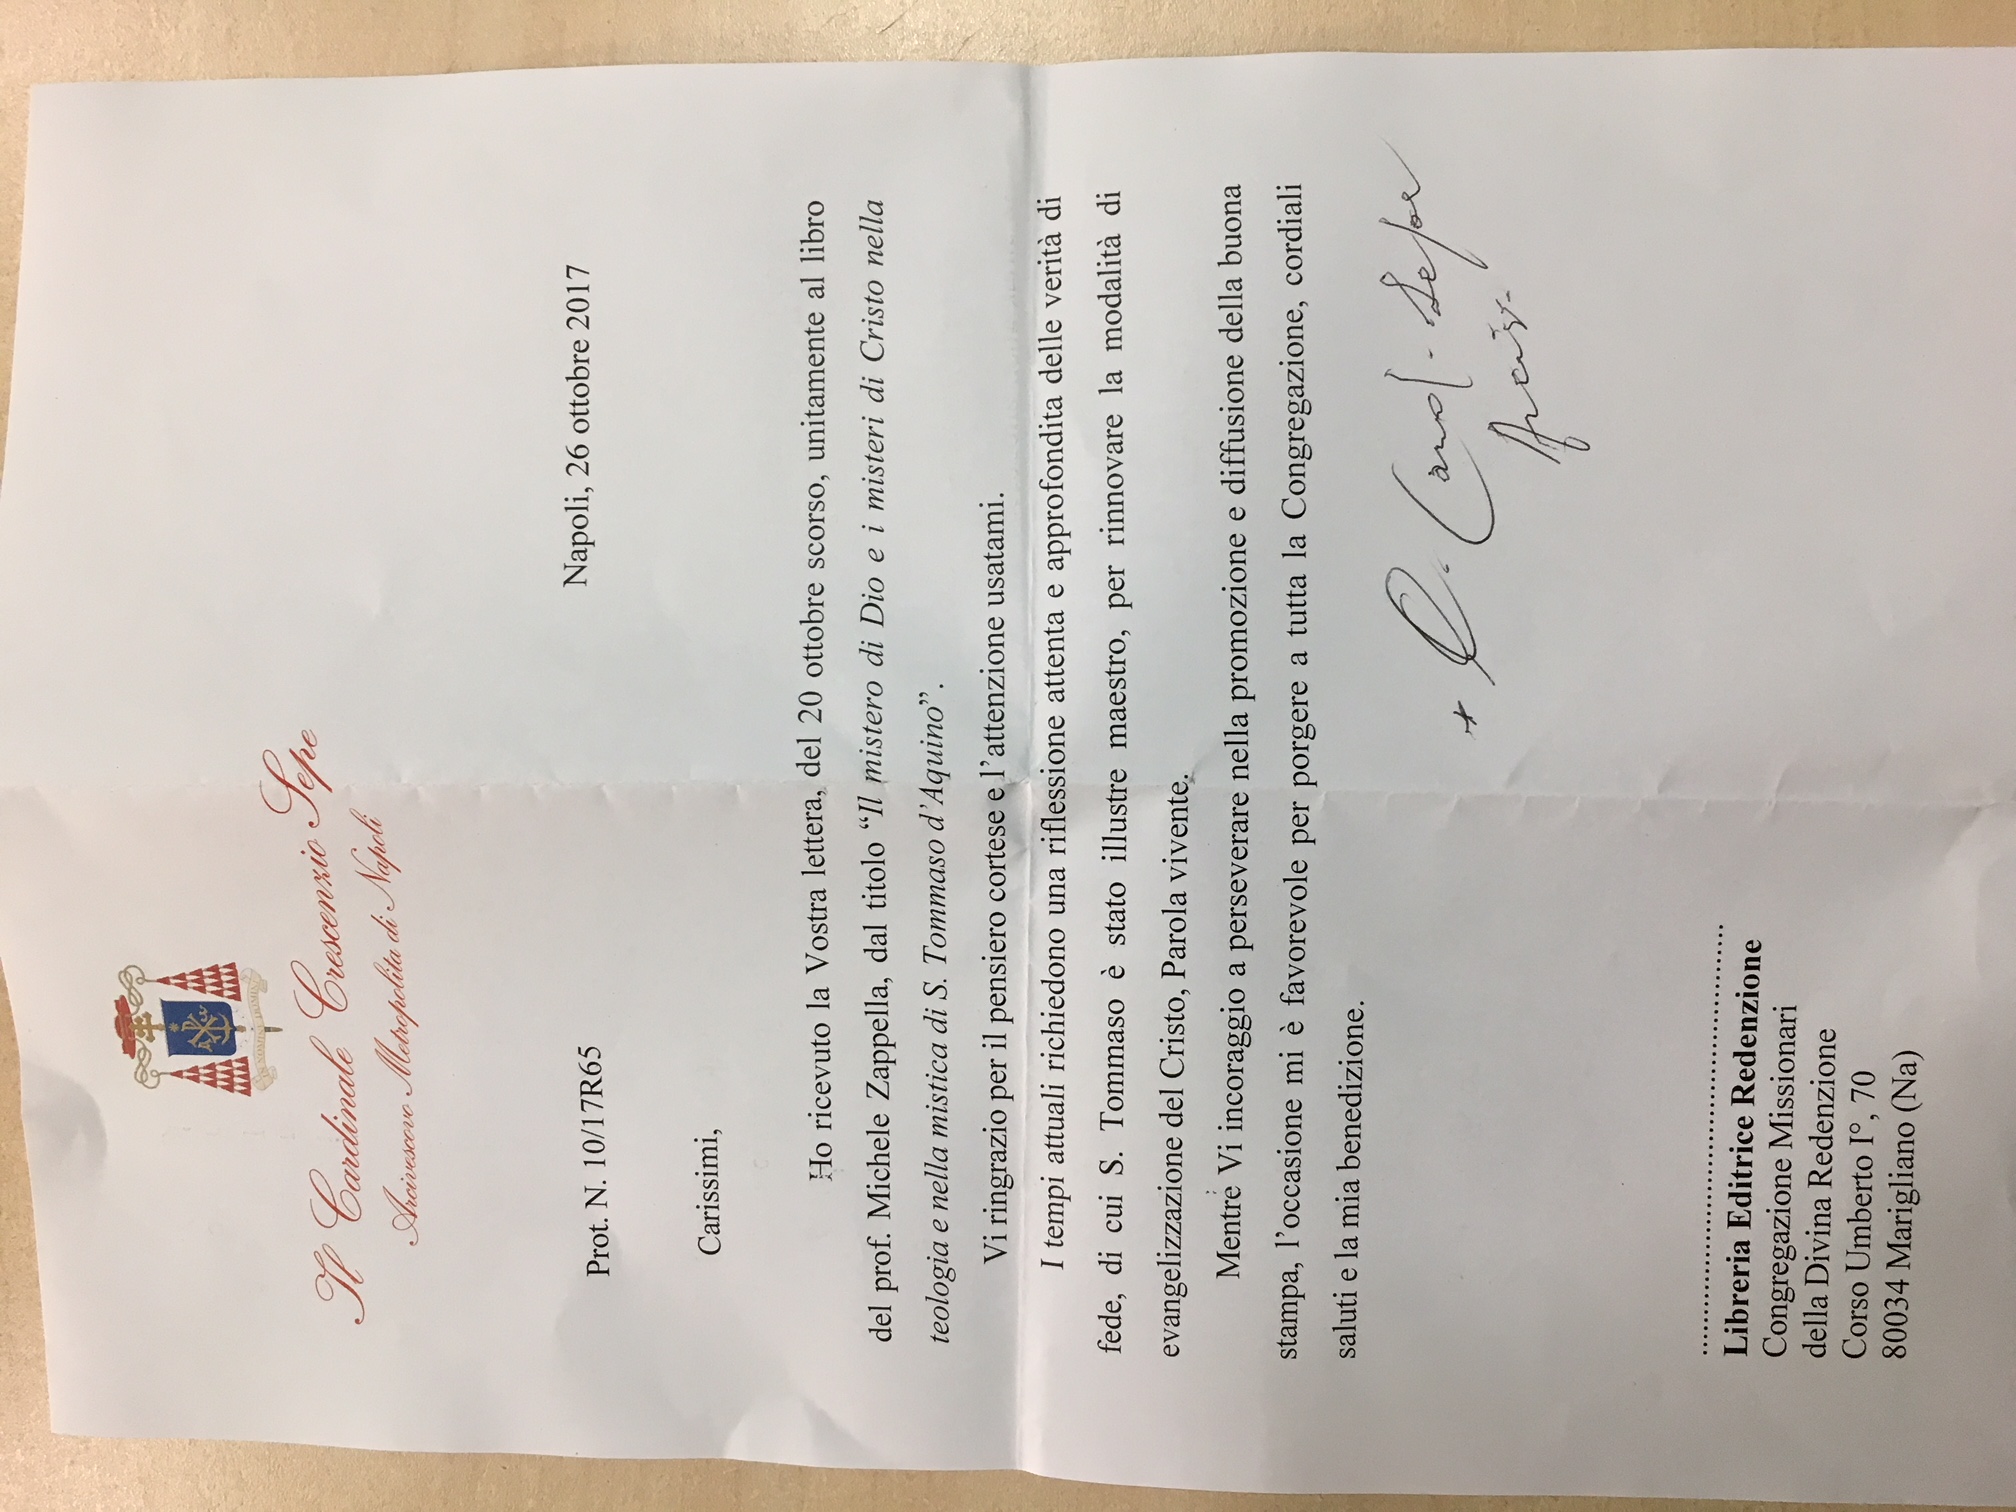 Il Cardinale Crescenzio Sepe
Arcivescovo Metropolita di Napoli
Prot. N. 10/17R65
Napoli, 26 ottobre 2017
Carissimi,
Ho ricevuto la Vostra lettera, del 20 ottobre scorso, unitamente al libro
del prof. Michele Zappella, dal titolo “Il mistero di Dio e i misteri di Cristo nella
teologia e nella mistica di S. Tommaso d’Aquino”.
Vi ringrazio per il pensiero cortese e l’attenzione usatami.
I tempi attuali richiedono una riflessione attenta e approfondita delle verità di
fede, di cui S. Tommaso è stato illustre maestro, per rinnovare la modalità di
evangelizzazione del Cristo, Parola vivente.
Mentre Vi incoraggio a perseverare nella promozione e diffusione della buona
stampa, l’occasione mi è favorevole per porgere a tutta la Congregazione, cordiali
saluti e la mia benedizione.
Card. Sepe
Libreria Editrice Redenzione
Congregazione Missionari
della Divina Redenzione
Corso Umberto I°, 70
80034 Marigliano (Na)